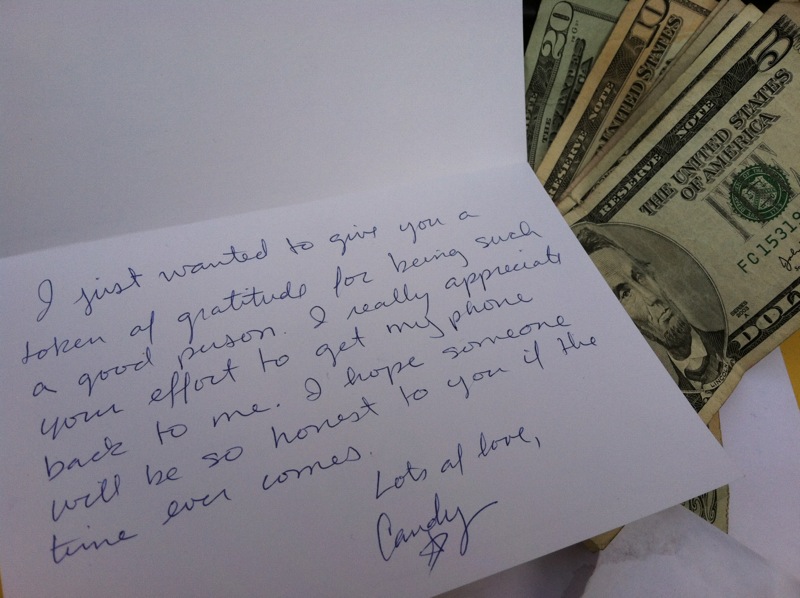 I just wanted to give you a
token of gratitude for being such
a good person. I really appreciate
your effort to get my phone
back to me. I hope someone
will be so honest to you if the
time ever comes.
Lots of love,
Candy
20
THE
10
RESERVE NOTE
UNITED STATES
5
RESERVE NOTE
THE UNITED STATES
OF AMERICA
FC15319
SERIES
LINCOLN